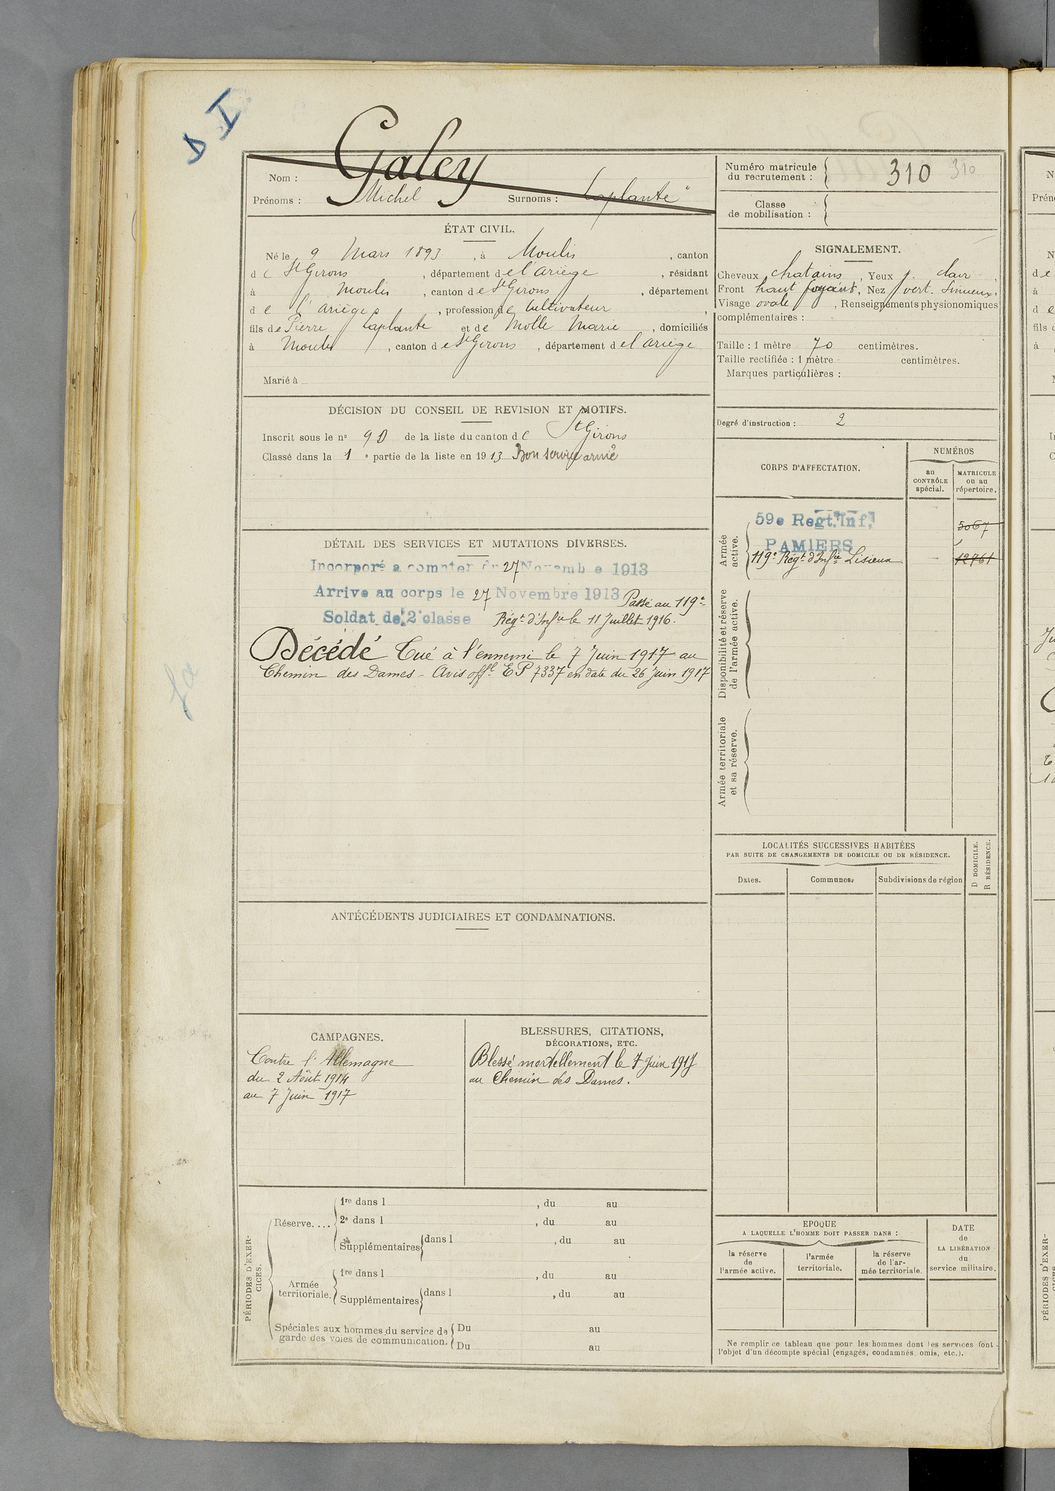 S I
Galey
Nom :
Prénoms : Michel Surnoms : Laplante
ÉTAT CIVIL.
Né le 9 Mars 1893, à Moulis, canton
de St Girons, département de l'Ariège, résidant
à Moulis, canton de St Girons, département
de l'Ariège, profession de Cultivateur,
fils de Pierre Laplante et de Molle Marie, domiciliés
à Moulis, canton de St Girons, département de l'Ariège
Marié à
DÉCISION DU CONSEIL DE REVISION ET MOTIFS.
Inscrit sous le n° 90 de la liste du canton de St Girons
Classé dans la 1e partie de la liste en 1913 Bon service armé
DÉTAIL DES SERVICES ET MUTATIONS DIVERSES.
Incorporé à compter du 27 Novembre 1913
Arrive au corps le 27 Novembre 1913 Passé au 119e
Soldat de 2e classe Régt d'Infie le 11 Juillet 1916.
Décédé Tué à l'ennemi le 7 Juin 1917 au
Chemin des Dames - Avis offl EP 7337 en date du 26 juin 1917
ANTÉCÉDENTS JUDICIAIRES ET CONDAMNATIONS.
CAMPAGNES.
Contre l'Allemagne
du 2 Août 1914
au 7 Juin 1917
BLESSURES, CITATIONS,
DÉCORATIONS, ETC.
Blessé mortellement le 7 Juin 1917
au Chemin des Dames.
PÉRIODES D'EXER-
CICES.
Réserve....
1re dans l , du au
2e dans l , du au
Supplémentaires dans l , du au
Armée
territoriale.
1re dans l , du au
Supplémentaires dans l , du au
Spéciales aux hommes du service de
garde des voies de communication.
Du au
Du au
Numéro matricule
du recrutement : 310 310
Classe
de mobilisation :
SIGNALEMENT.
Cheveux chatains, Yeux j. clair
Front haut fuyant, Nez vert. Sinueux,
Visage ovale, Renseignements physionomiques
complémentaires :
Taille : 1 mètre 70 centimètres.
Taille rectifiée : 1 mètre centimètres.
Marques particulières :
Degré d'instruction : 2
CORPS D'AFFECTATION.
NUMÉROS
au
CONTRÔLE
spécial.
MATRICULE
ou au
répertoire.
Armée
active.
59e Regt. Inf.
PAMIERS
5067
119e Régt d'Infie Lisieux
12761
Disponibilité et réserve
de l'armée active.
Armée territoriale
et sa réserve.
LOCALITÉS SUCCESSIVES HABITÉES
PAR SUITE DE CHANGEMENTS DE DOMICILE OU DE RÉSIDENCE.
Dates.
Communes.
Subdivisions de région
D DOMICILE.
R RÉSIDENCE.
EPOQUE
A LAQUELLE L'HOMME DOIT PASSER DANS :
la réserve
de
l'armée active.
l'armée
territoriale.
la réserve
de l'ar-
mée territoriale.
DATE
de
LA LIBÉRATION
du
service militaire.
Ne remplir ce tableau que pour les hommes dont les services font
l'objet d'un décompte spécial (engagés, condamnés, omis, etc.).